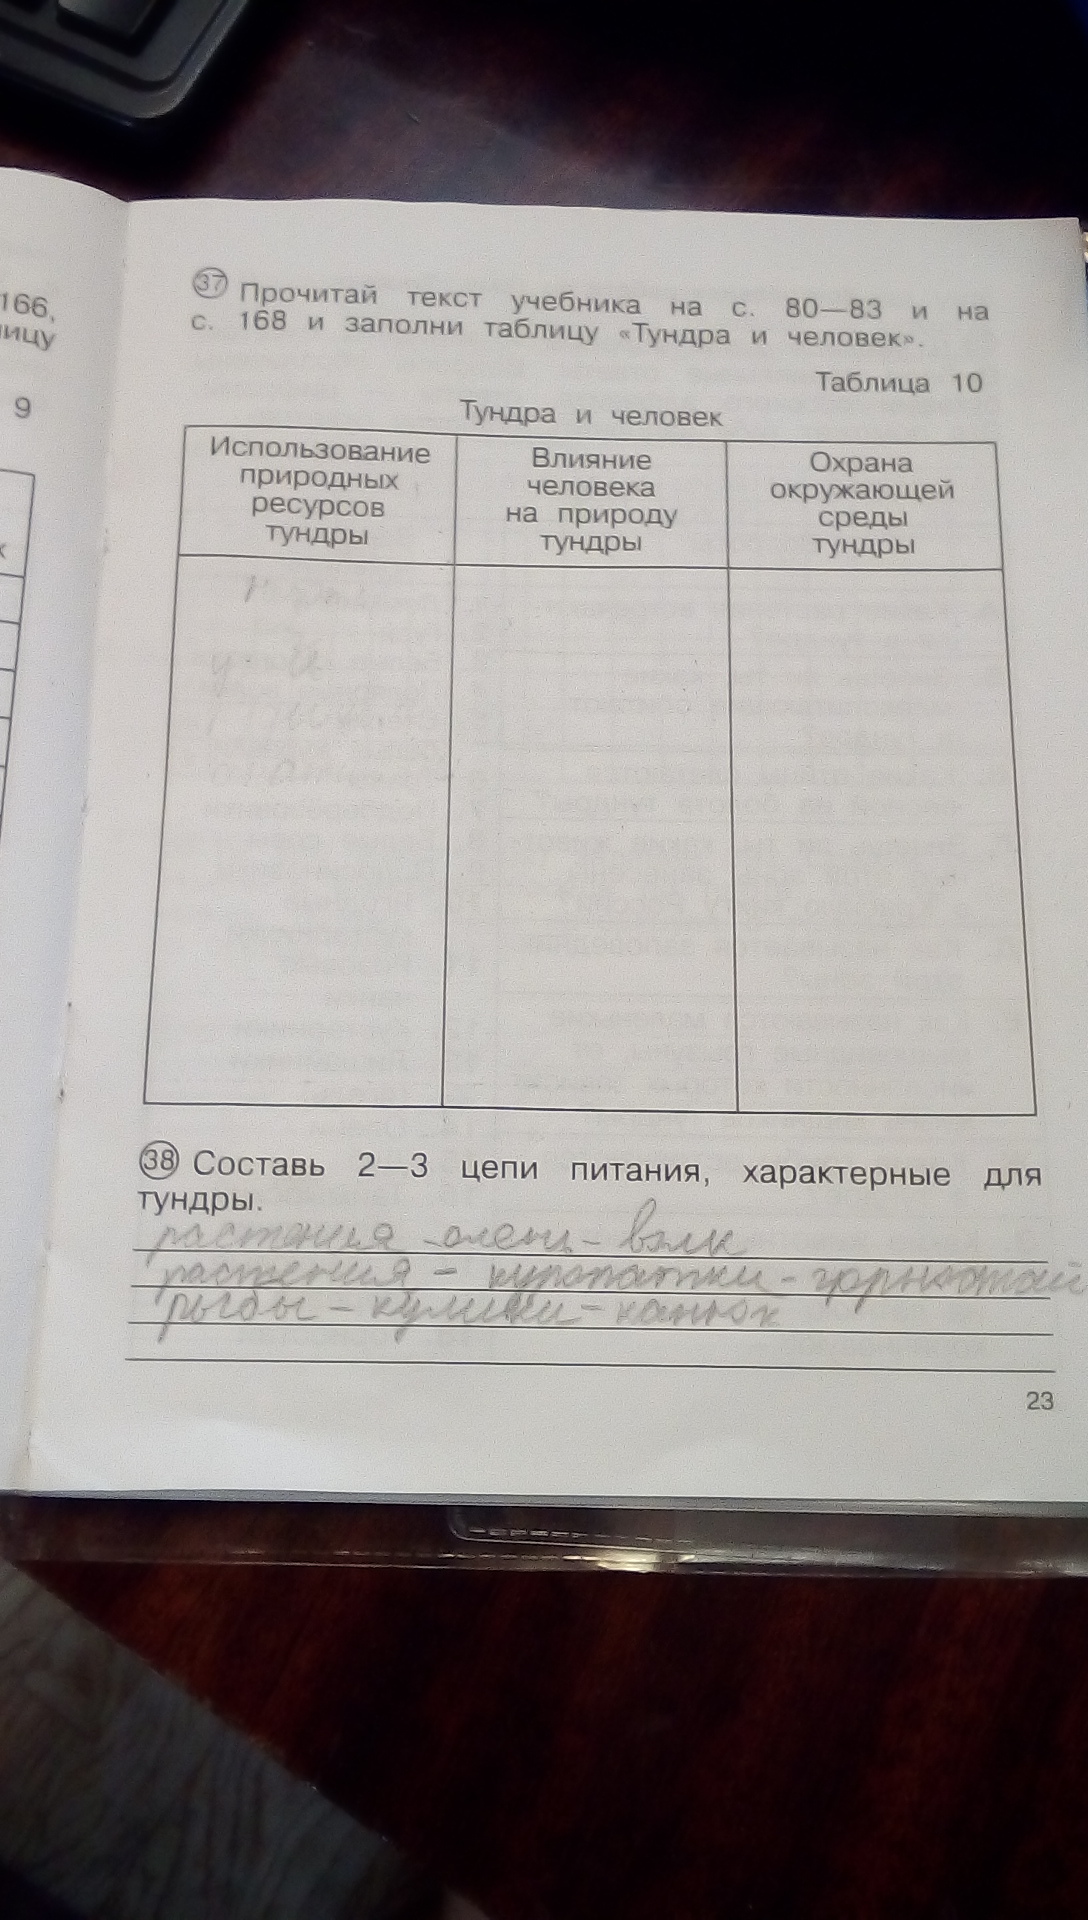 166,
9
37 Прочитай текст учебника на с. 80—83 и на
с. 168 и заполни таблицу «Тундра и человек».
Таблица 10
Тундра и человек
Использование
природных
ресурсов
тундры
Влияние
человека
на природу
тундры
Охрана
окружающей
среды
тундры
38 Составь 2—3 цепи питания, характерные для
тундры.
растения - олени - волк
растения - куропатки - горностай
рыбы - кулики - канюк
23